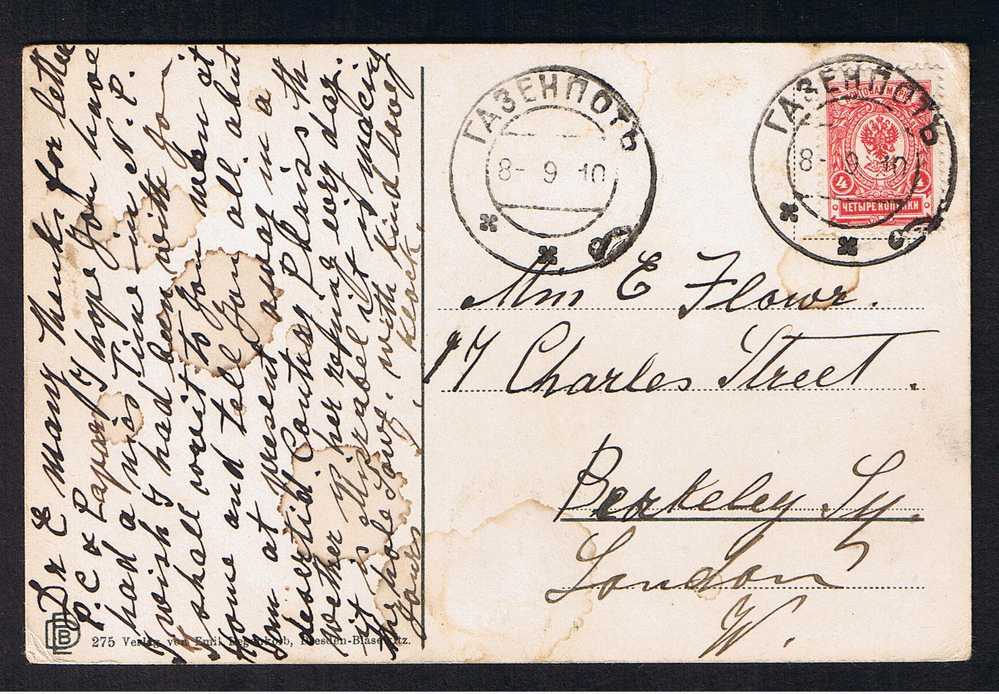 Dr E many thanks for letter
P.C & Papers I hope you have
had a nise time in N.P.
I wish I had been with you
I shall wrait to you when at
home and tell you all about
I'm at present away in a
desertid Contray Plais the
wether is her raining eiry day.
it is Misrabel it is making
the hole Song. with kind love
yours
ГАЗЕНПОТЪ
8- 9 10
ГАЗЕНПОТЪ
8- 9 10
4
ЧЕТЫРЕ КОПѢЙКИ
Miss E Flowr.
17 Charles Street.
Berkeley Sq.
London
W.
275 Verlag von Emil Degenkolb, Dresden-Blasewitz.